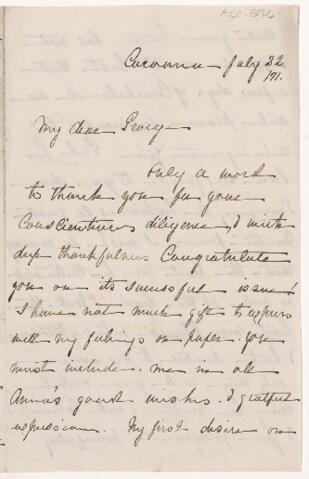 July 22
/71.
My dear George
Only a word
to thank you for your
Conscientious diligence, & with
deep thankfulness Congratulate
you on its successful issue!
I have not much gift to express
with my feelings on paper. You
must include me in all
Anna's good wishes & grateful
expressions. My first desire on